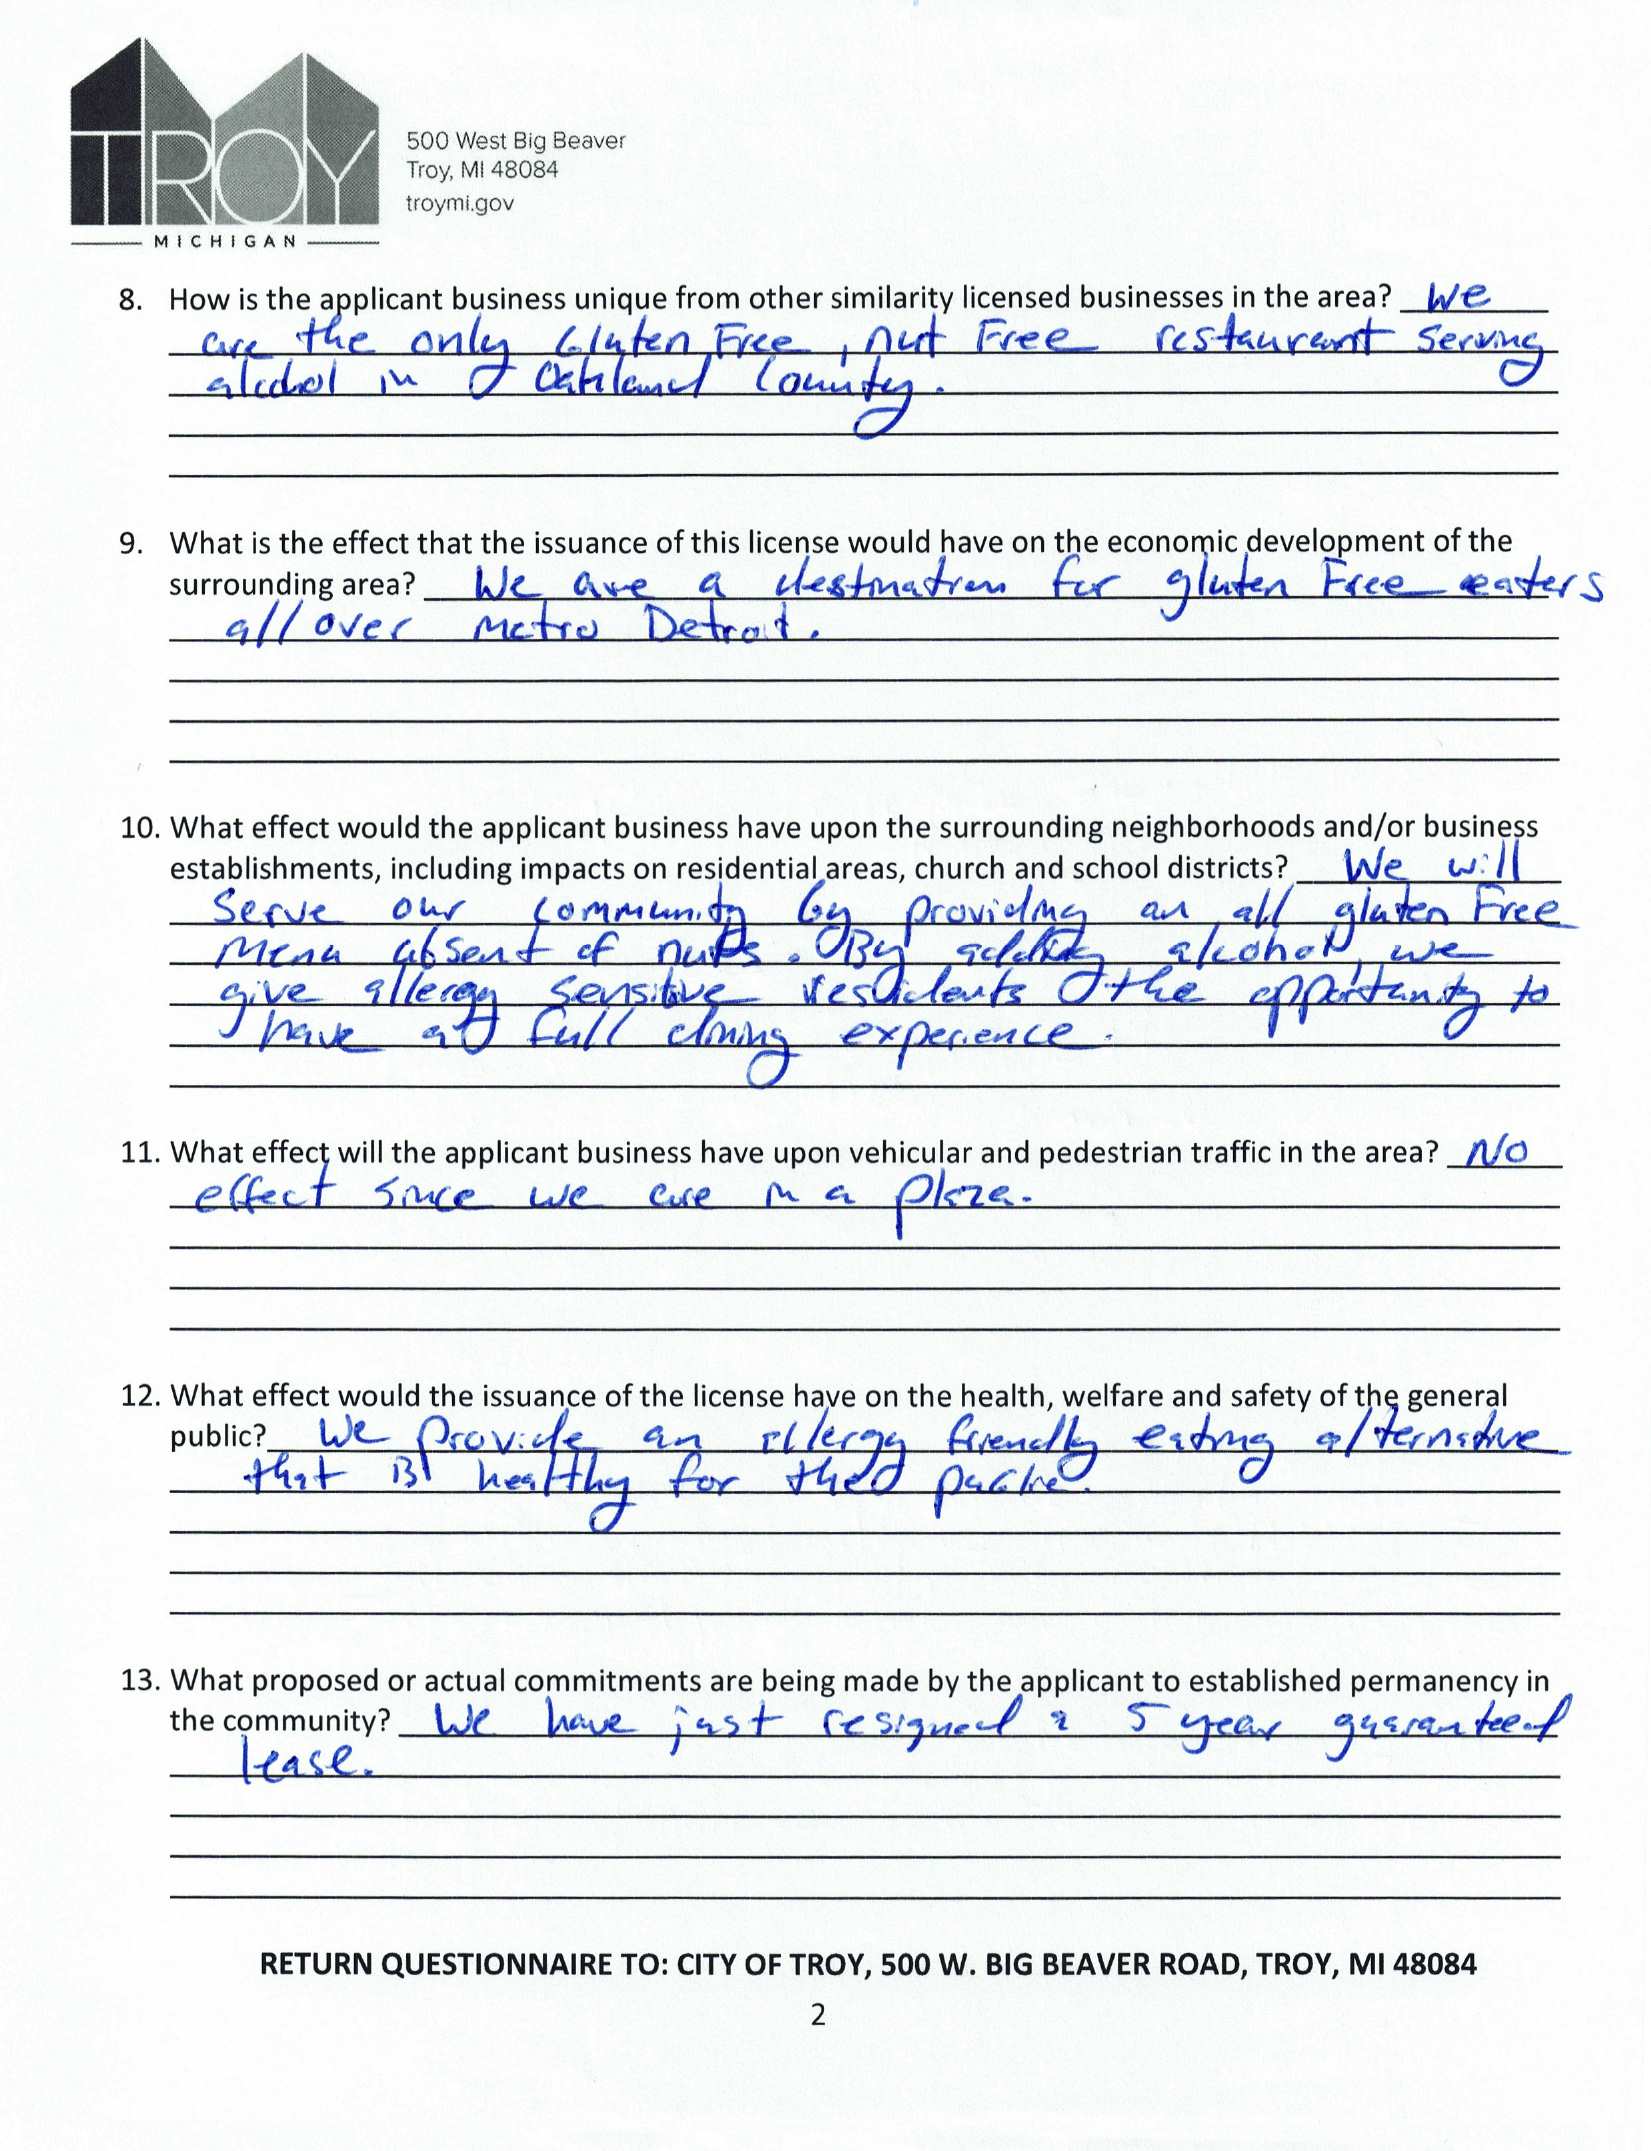 TROY
MICHIGAN
500 West Big Beaver
Troy, MI 48084
troymi.gov
8. How is the applicant business unique from other similarity licensed businesses in the area? We
are the only Gluten Free, nut Free restaurant serving
alcohol in Oakland County.
9. What is the effect that the issuance of this license would have on the economic development of the
surrounding area? We are a destination for gluten Free eaters
all over Metro Detroit.
10. What effect would the applicant business have upon the surrounding neighborhoods and/or business
establishments, including impacts on residential areas, church and school districts? We will
Serve our community by providing an all gluten Free
menu absent of nuts. By adding alcohol, we
give allergy sensitive residents the opportunity to
have a full dining experience.
11. What effect will the applicant business have upon vehicular and pedestrian traffic in the area? No
effect since we are in a plaza.
12. What effect would the issuance of the license have on the health, welfare and safety of the general
public? We provide an allergy friendly eating alternative
that is healthy for the public.
13. What proposed or actual commitments are being made by the applicant to established permanency in
the community? We have just resigned a 5 year guaranteed
lease.
RETURN QUESTIONNAIRE TO: CITY OF TROY, 500 W. BIG BEAVER ROAD, TROY, MI 48084
2